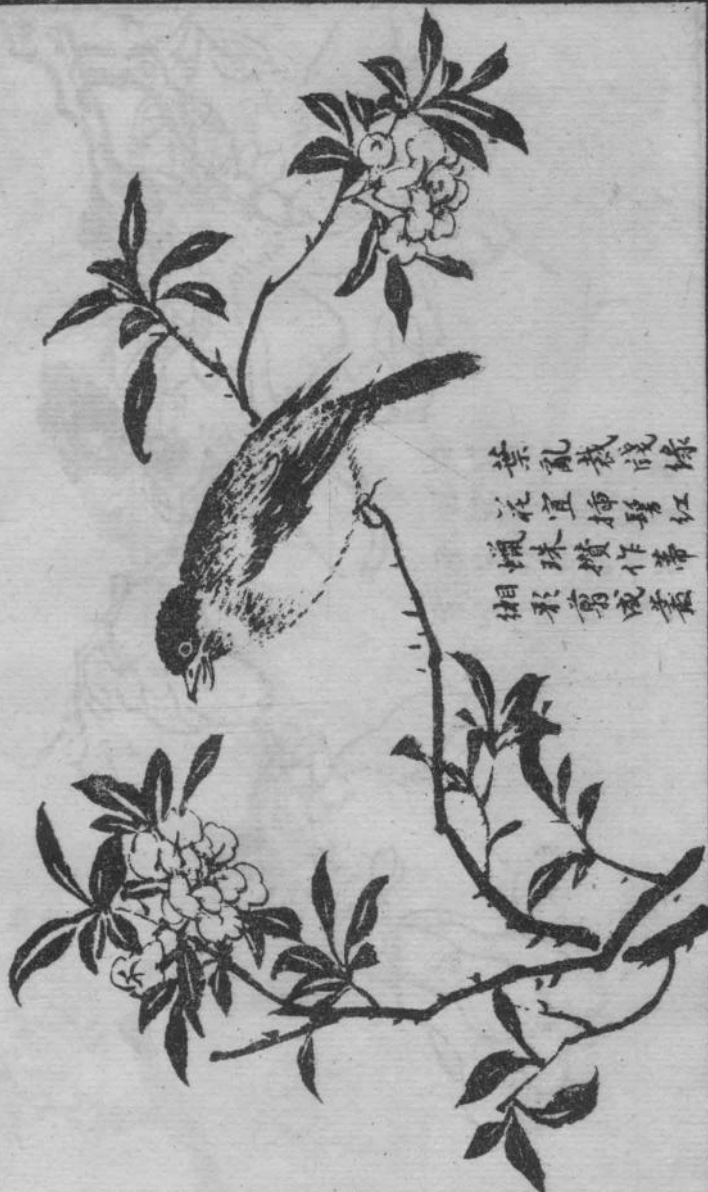 葉亂裁牋綠
花宜插鬢紅
蠟珠攢作蒂
緗彩剪成叢